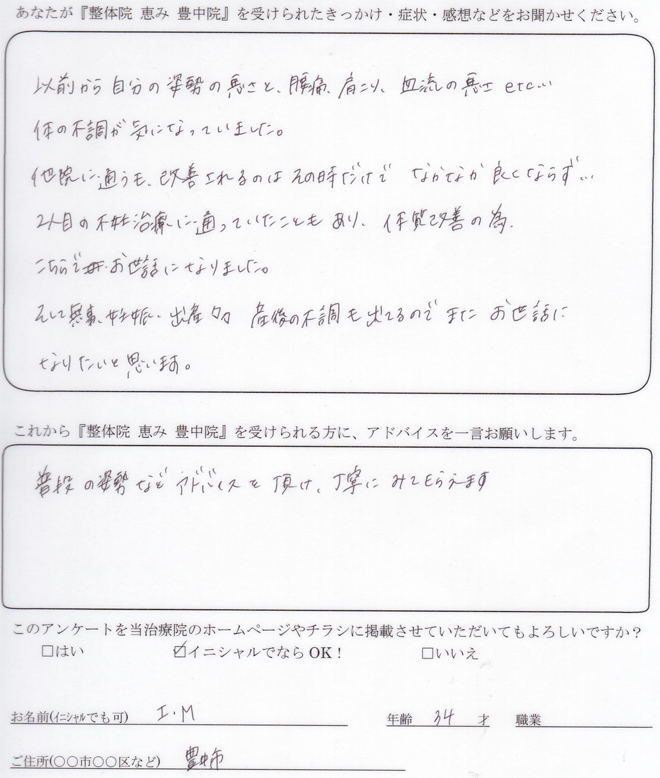 あなたが『整体院 恵み 豊中院』を受けられたきっかけ・症状・感想などをお聞かせください。
以前から自分の姿勢の悪さと、腰痛、肩こり、血流の悪さ etc…
体の不調が気になっていました。
他院に通うも、改善されるのはその時だけで なかなか良くならず…
2人目の不妊治療に通っていたこともあり、体質改善の為、
こちらで お世話になりました。
そして無事、妊娠・出産 産後の不調も出てるのでまた お世話に
なりたいと思います。
これから『整体院 恵み 豊中院』を受けられる方に、アドバイスを一言お願いします。
普段の姿勢など アドバイスを頂け、丁寧にみてもらえます
このアンケートを当治療院のホームページやチラシに掲載させていただいてもよろしいですか?
□はい ☑イニシャルでならOK! □いいえ
お名前(イニシャルでも可) I・M 年齢 34 才 職業
ご住所(〇〇市〇〇区など) 豊中市